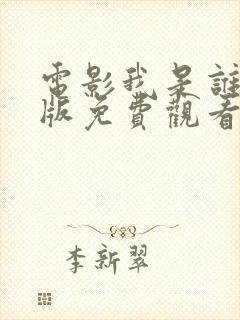 電影我是誰
版免費觀看
李新翠